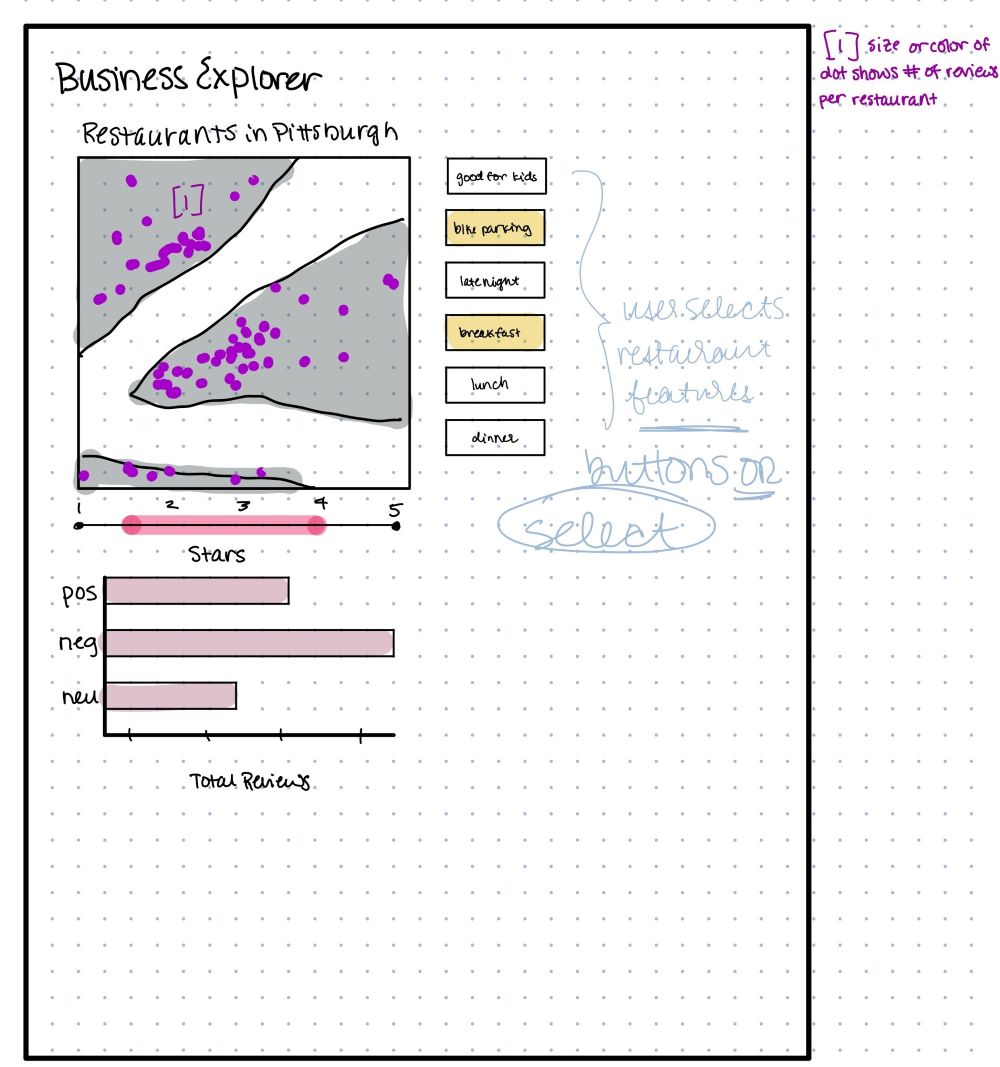 Business Explorer
Restaurants in Pittsburgh
[1]
good for kids
bike parking
late night
breakfast
lunch
dinner
user selects
restauraint
features
buttons OR
select
1 2 3 4 5
Stars
pos
neg
neu
Total Reviews
[1] size or color of
dot shows # of reviews
per restaurant